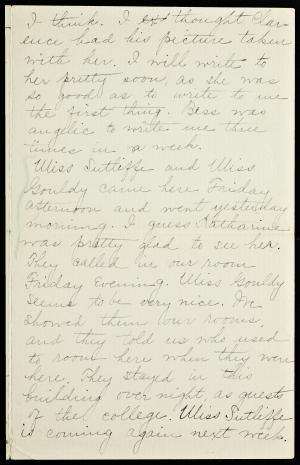 I think. I thought Clar-
ence had his picture taken
with her. I will write to
her pretty soon, as she was
so good as to write to me
the first thing. Bess was
angelic to write me three
times in a week.
Miss Sutliffe and Miss
Gouldy came here Friday
afternoon and went yesterday
morning. I guess Katharine
was pretty glad to see her.
They called in our room
Friday Evening. Miss Gouldy
seems to be very nice. We
showed them our rooms,
and they told us who used
to room here when they were
here. They stayed in this
building over night, as guests
of the college. Miss Sutliffe
is coming again next week.